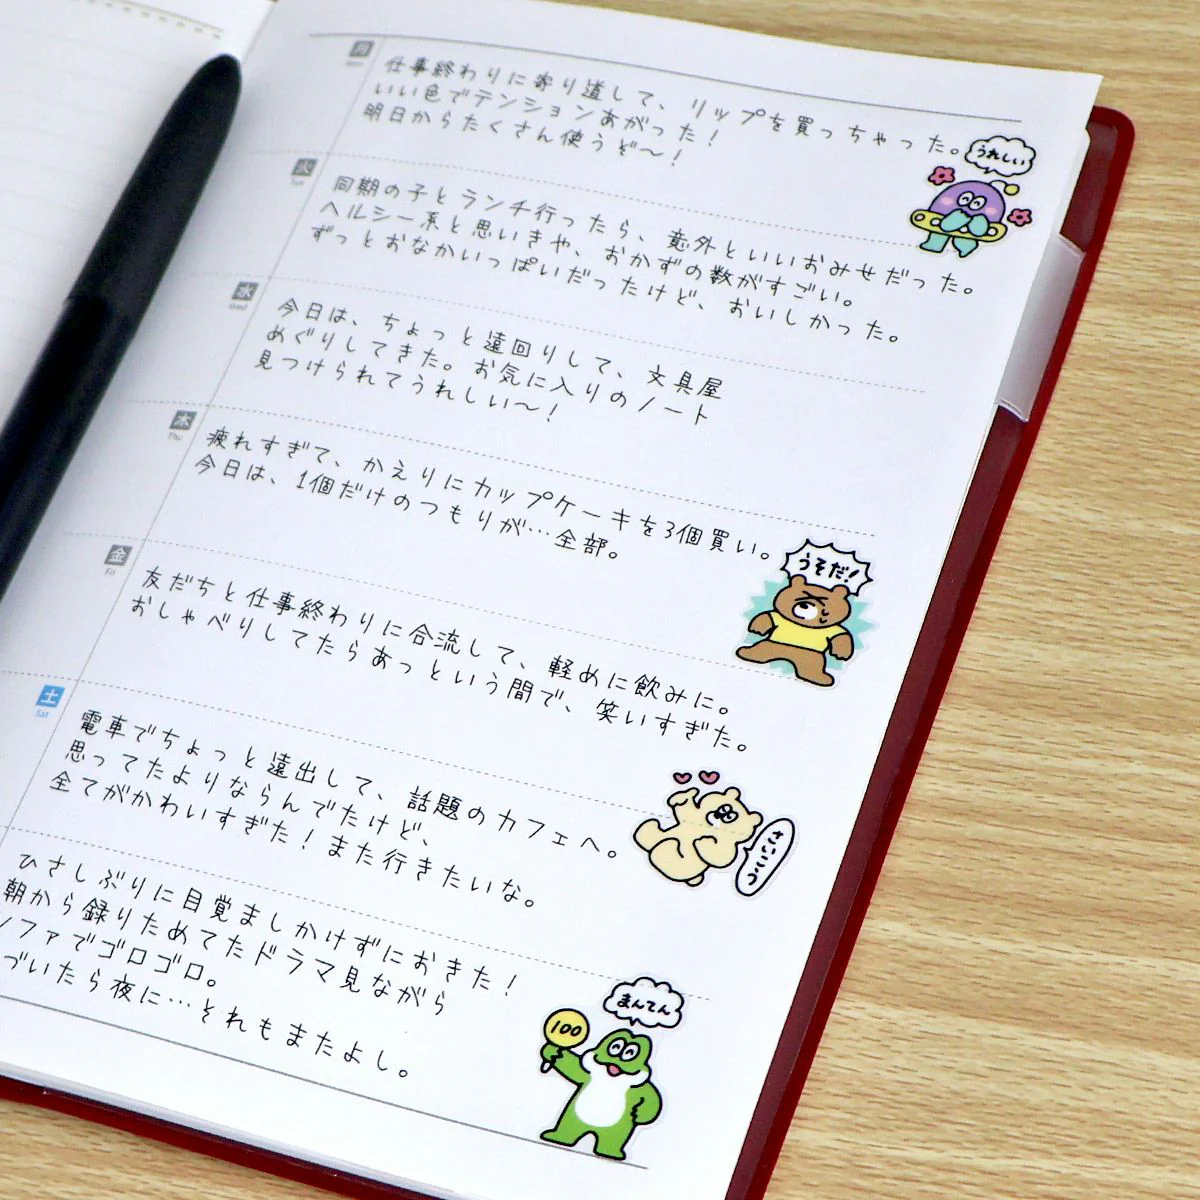 月
Mon
仕事終わりに寄り道して、リップを買っちゃった。
いい色でテンションあがった!
明日からたくさん使うぞ〜!
うれしい
火
Tue
同期の子とランチ行ったら、意外といいおみせだった。
ヘルシー系と思いきや、おかずの数がすごい。
ずっとおなかいっぱいだったけど、おいしかった。
水
Wed
今日は、ちょっと遠回りして、文具屋
めぐりしてきた。お気に入りのノート
見つけられてうれしい〜!
木
Thu
疲れすぎて、かえりにカップケーキを3個買い。
今日は、1個だけのつもりが…全部。
うそだ!
金
Fri
友だちと仕事終わりに合流して、軽めに飲みに。
おしゃべりしてたらあっという間で、笑いすぎた。
土
Sat
電車でちょっと遠出して、話題のカフェへ。
思ってたよりならんでたけど、
全てがかわいすぎた!また行きたいな。
さいこう
ひさしぶりに目覚ましかけずにおきた!
朝から録りためてたドラマ見ながら
ソファでゴロゴロ。
づいたら夜に…それもまたよし。
まんてん
100